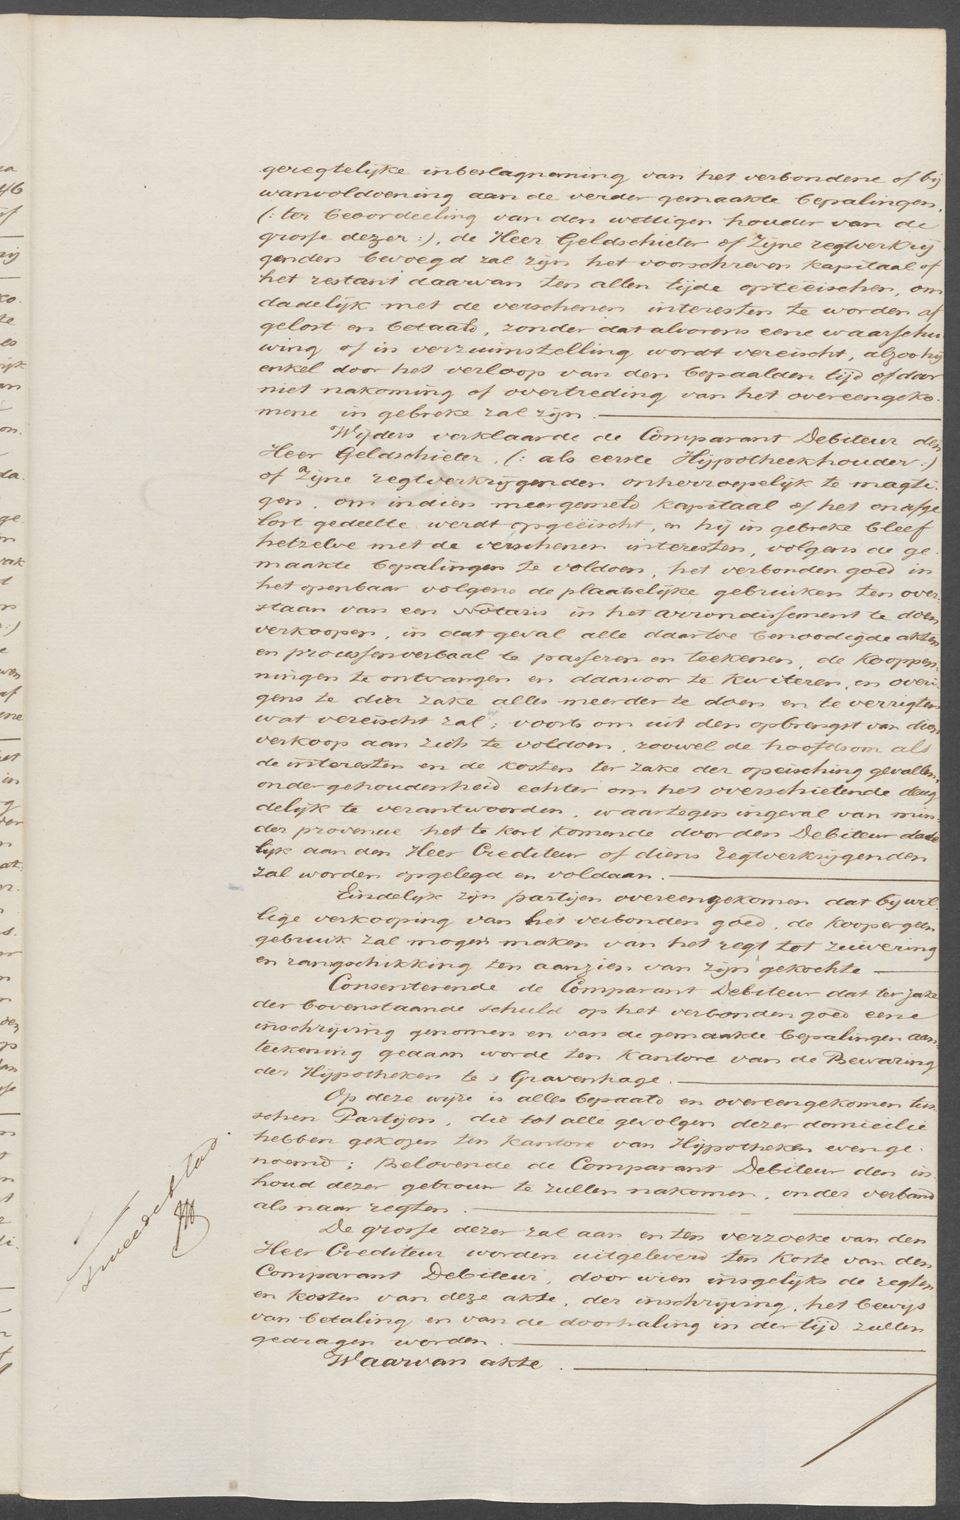 geregtelijke inbeslagneming van het verbondene of bij
wanvoldoening aan de verder gemaakte bepalingen,
(: ter beoordeeling van den wettigen houder van de
grosse dezer :), de Heer Geldschieter of Zijne regtverkrij
genden bevoegd zal zijn het voorschreven kapitaal of
het restant daarvan ten allen tijde opteëischen, om
dadelijk met de verschenen interesten te worden af
gelost en betaald, zonder dat alvorens eene waarschu
wing of in verzuimstelling wordt vereischt, alzoo hij
enkel door het verloop van den bepaalden tijd of door
niet nakoming of overtreding van het overeengeko-
mene in gebreke zal zijn.
Wijders verklaarde de Comparant Debiteur den
Heer Geldschieter, (: als eerste Hijpotheekhouder :)
of Zijne regtverkrijgenden onherroepelijk te magti-
gen, om indien meergemeld kapitaal of het onafge
lost gedeelte werdt opgeëischt, en hij in gebreke bleef
hetzelve met de verschenen interesten, volgens de ge-
maakte bepalingen te voldoen, het verbonden goed in
het openbaar volgens de plaatselijke gebruiken ten over-
staan van een Notaris in het arrondissement te doen
verkoopen, in dat geval alle daartoe benoodigde akten
en processenverbaal te passeren en teekenen, de kooppen-
ningen te ontvangen en daarvoor te kwiteren, en overi-
gens te dier zake alles meerder te doen en te verrigten
wat vereischt zal; voorts om uit den opbrengst van dien
verkoop aan zich te voldoen, zoowel de hoofdsom als
de interesten en de kosten ter zake der opeisching gevallen,
ondergehoudenheid echter om het overschietende deug
delijk te verantwoorden, waartegen ingeval van min-
der provenue het te kort komende door den Debiteur dade
lijk aan den Heer Crediteur of diens regtverkrijgenden
zal worden opgelegd en voldaan.
Eindelijk zijn partijen overeengekomen dat bij wil-
lige verkooping van het verbonden goed, de kooper geen
gebruik zal mogen maken van het regt tot zuivering
en rangschikking ten aanzien van zijn gekochte
Consenterende de Comparant Debiteur dat ter zake
der bovenstaande schuld op het verbonden goed eene
inschrijving genomen en van de gemaakte bepalingen aan-
teekening gedaan worde ten kantore van de Bewaring
der Hijpotheken te s Gravenhage.
Op deze wijze is alles bepaald en overeengekomen tus-
schen Partijen, die tot alle gevolgen dezer domicilie
hebben gekozen ten kantore van Hijpotheken evenge-
noemd; Belovende de Comparant Debiteur den in-
houd dezer getrouw te zullen nakomen, onder verband
als naar regten.
De grosse dezer zal aan en ten verzoeke van den
Heer Crediteur worden uitgeleverd ten koste van den
Comparant Debiteur, door wien insgelijks de regten
en kosten van deze akte, der inschrijving, het bewijs
van betaling en van de doorhaling in der tijd zullen
gedragen worden.
Waarvan akte.
Tweede blad.